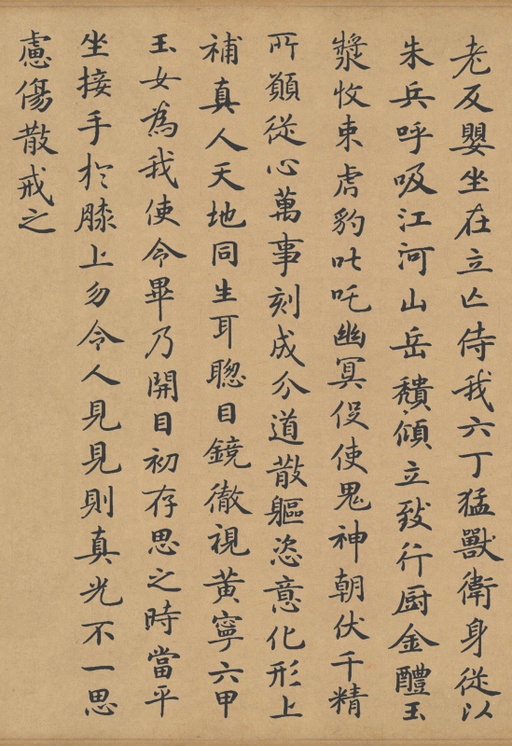 老反嬰坐在立亾侍我六丁猛獸衛身從以
朱兵呼吸江河山岳穨傾立致行厨金醴玉
漿收束虎豹叱吒幽冥役使鬼神朝伏千精
所願從心萬事刻成分道散軀恣意化形上
補真人天地同生耳聰目鏡徹視黃寧六甲
玉女為我使令畢乃開目初存思之時當平
坐接手於膝上勿令人見見則真光不一思
慮傷散戒之